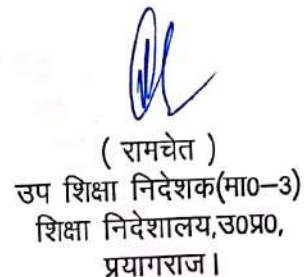 ( रामचेत )
उप शिक्षा निदेशक(मा०–3)
शिक्षा निदेशालय,उ०प्र०,
प्रयागराज।